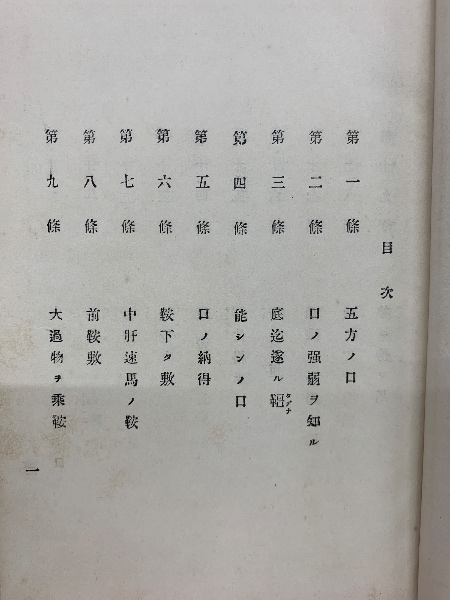 目次
第一條 五方ノ口
第二條 口ノ强弱ヲ知ル
第三條 底迄遂ル
タヅナ
第四條 能シンノ口
第五條 口ノ納得
第六條 鞍下タ敷
第七條 中肝速馬ノ鞍
第八條 前鞍敷
第九條 大過物ヲ乘鞍
一